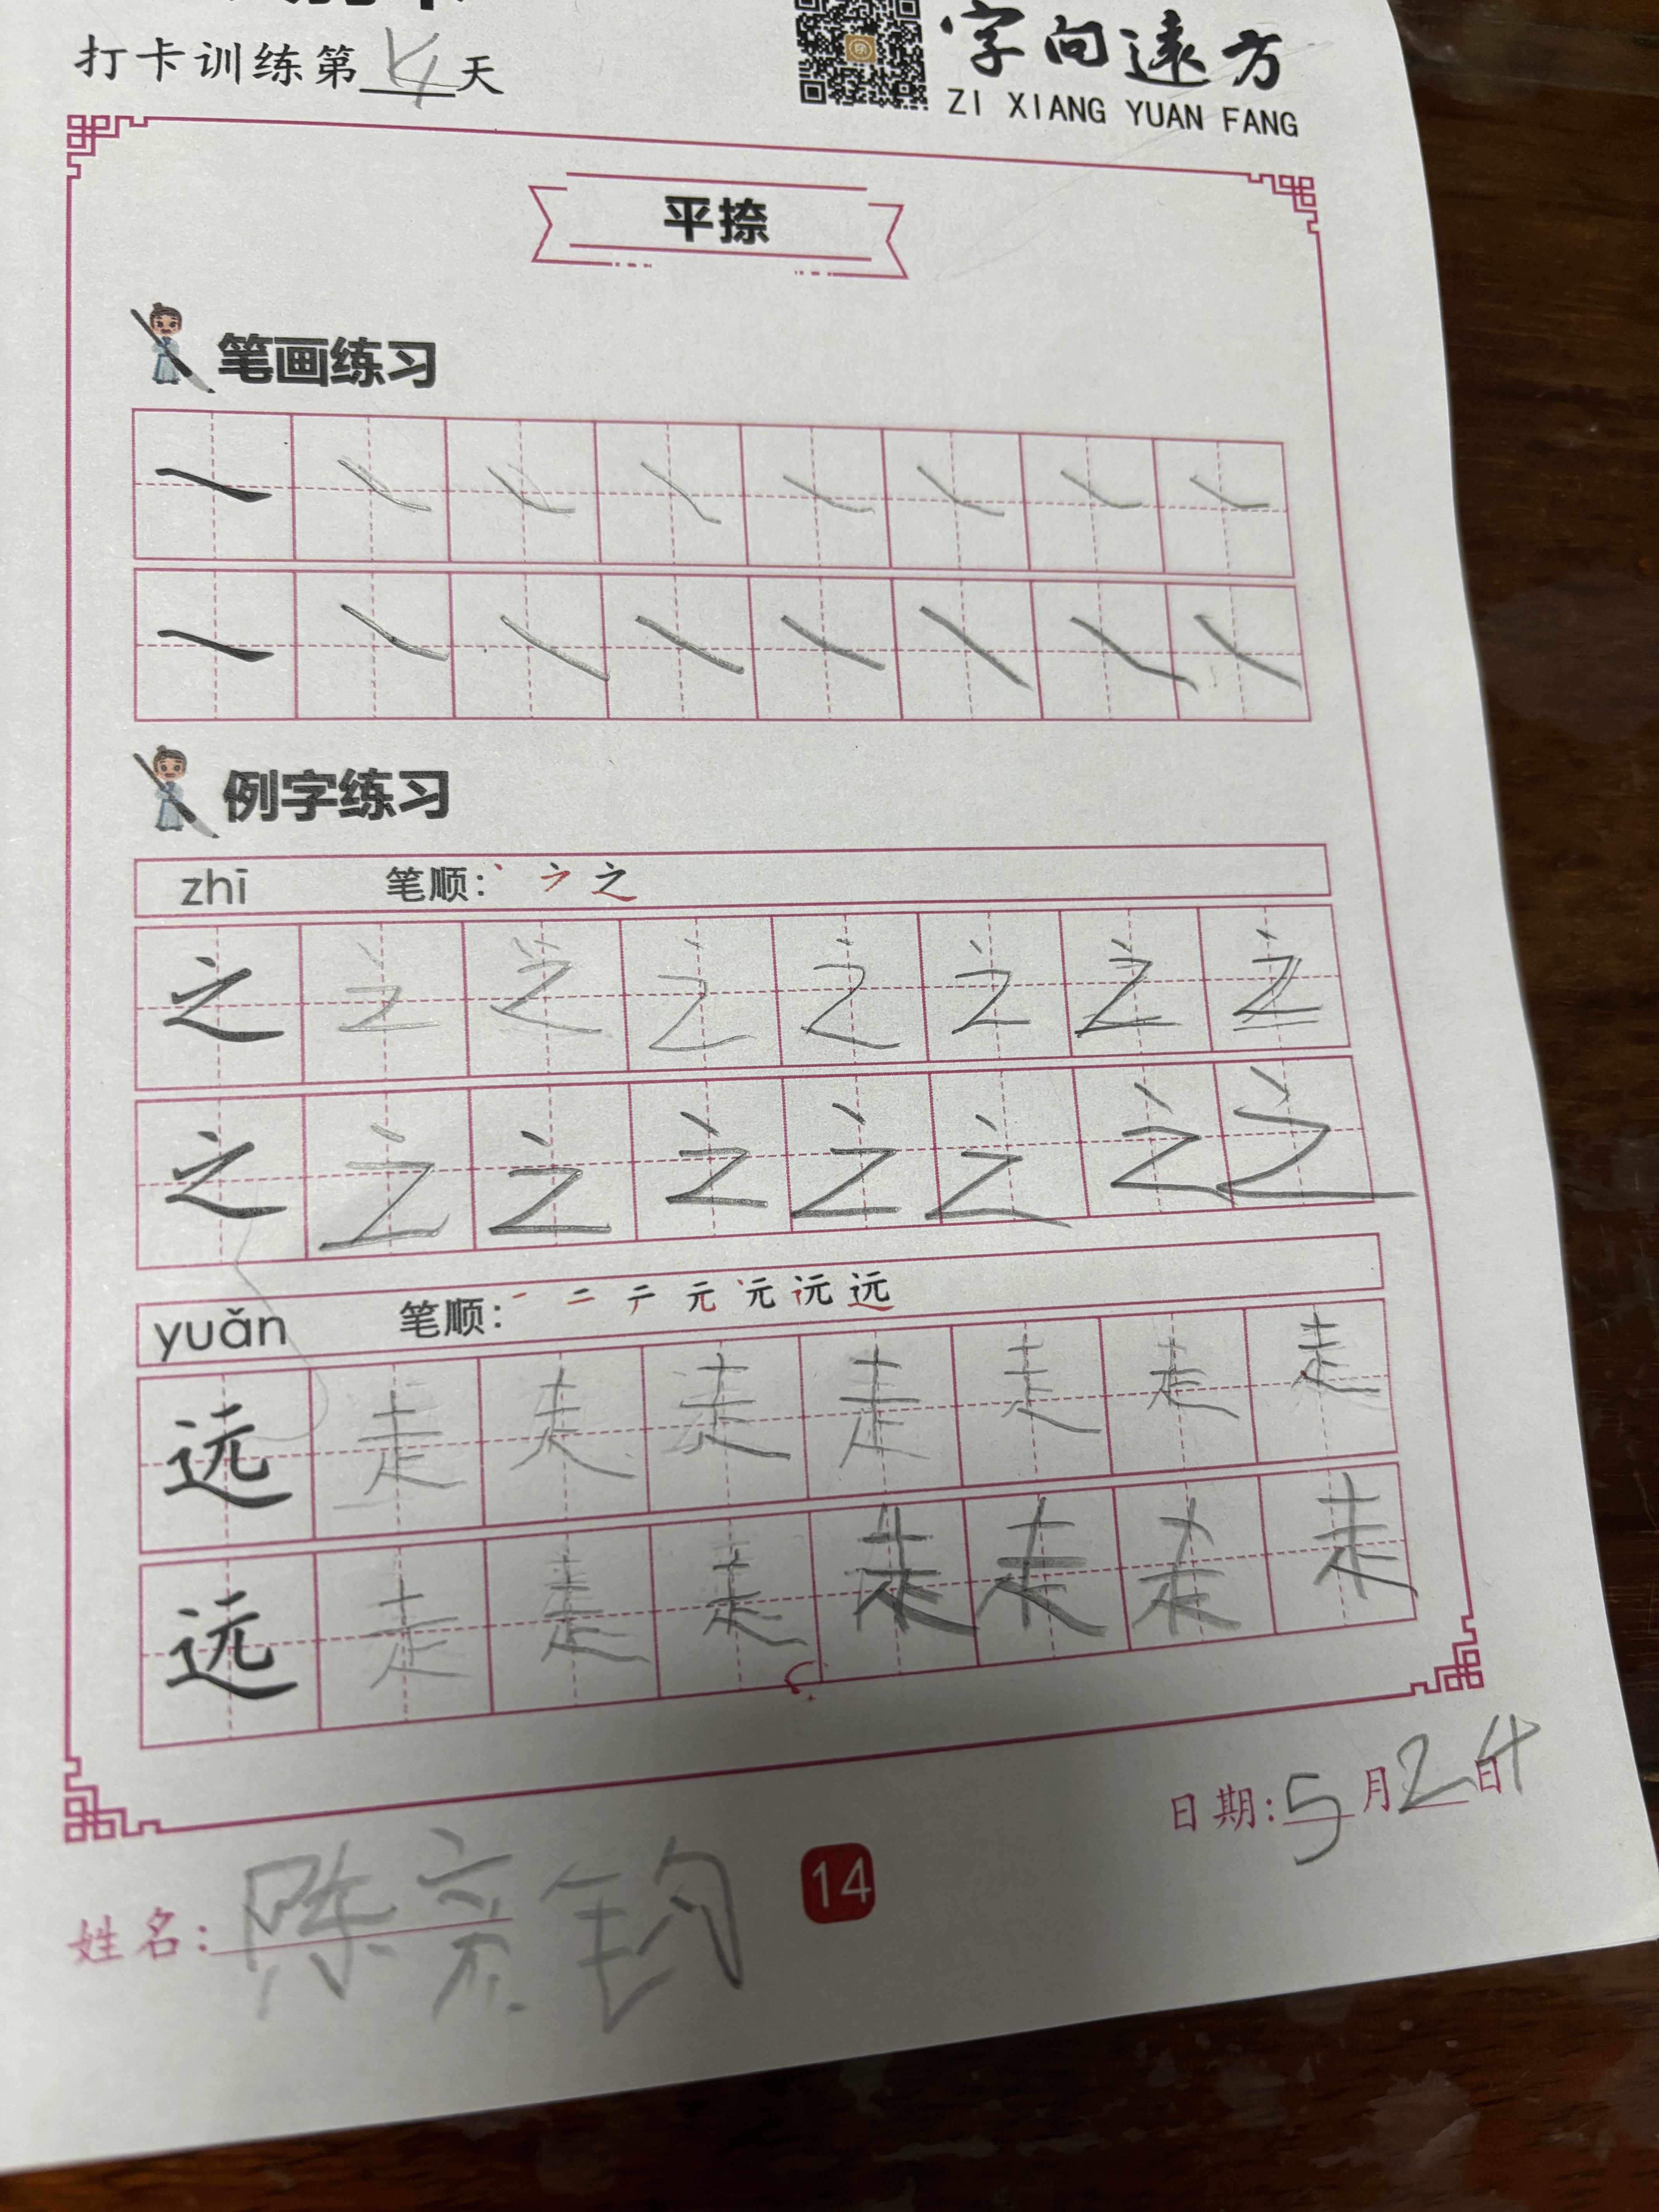 打卡训练第14天
字向遠方
ZI XIANG YUAN FANG
平捺
笔画练习
例字练习
zhī 笔顺:丶 ㇇ 之
之 之 之 之 之 之 之 之
之 之 之 之 之 之 之 之
yuǎn 笔顺:一 二 テ 元 沅 远
远 走 走 走 走 走 走 走
远 走 走 走 走 走 走 走
日期:5月24日
姓名:陈 钧
14